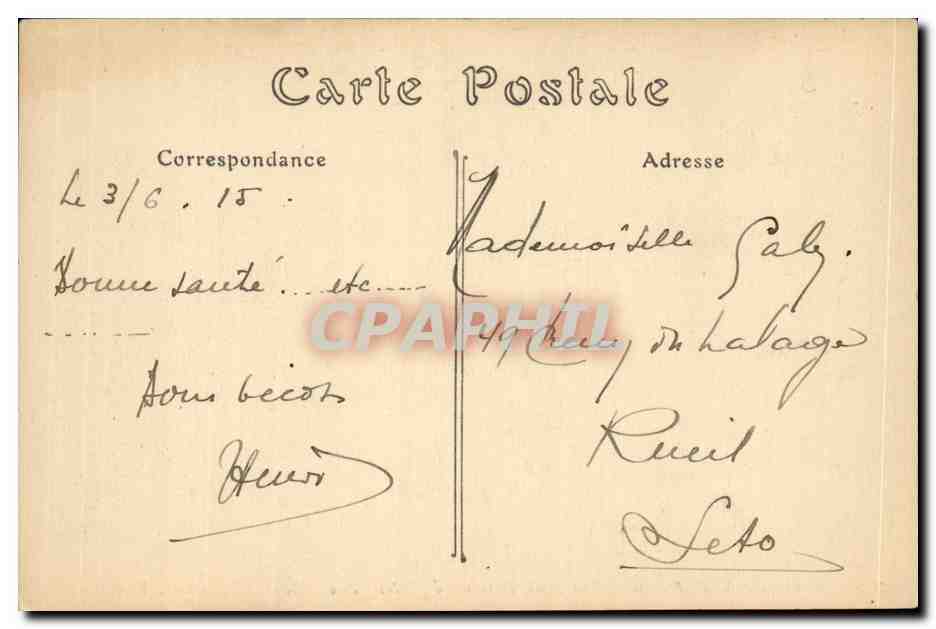 Carte Postale
Correspondance
Le 3/6 . 15 .
Bonne santé ... etc ....
......
Bons bécots
Henri
Adresse
Mademoiselle Gaby.
49
Rueil
S et O
CPAPHIL